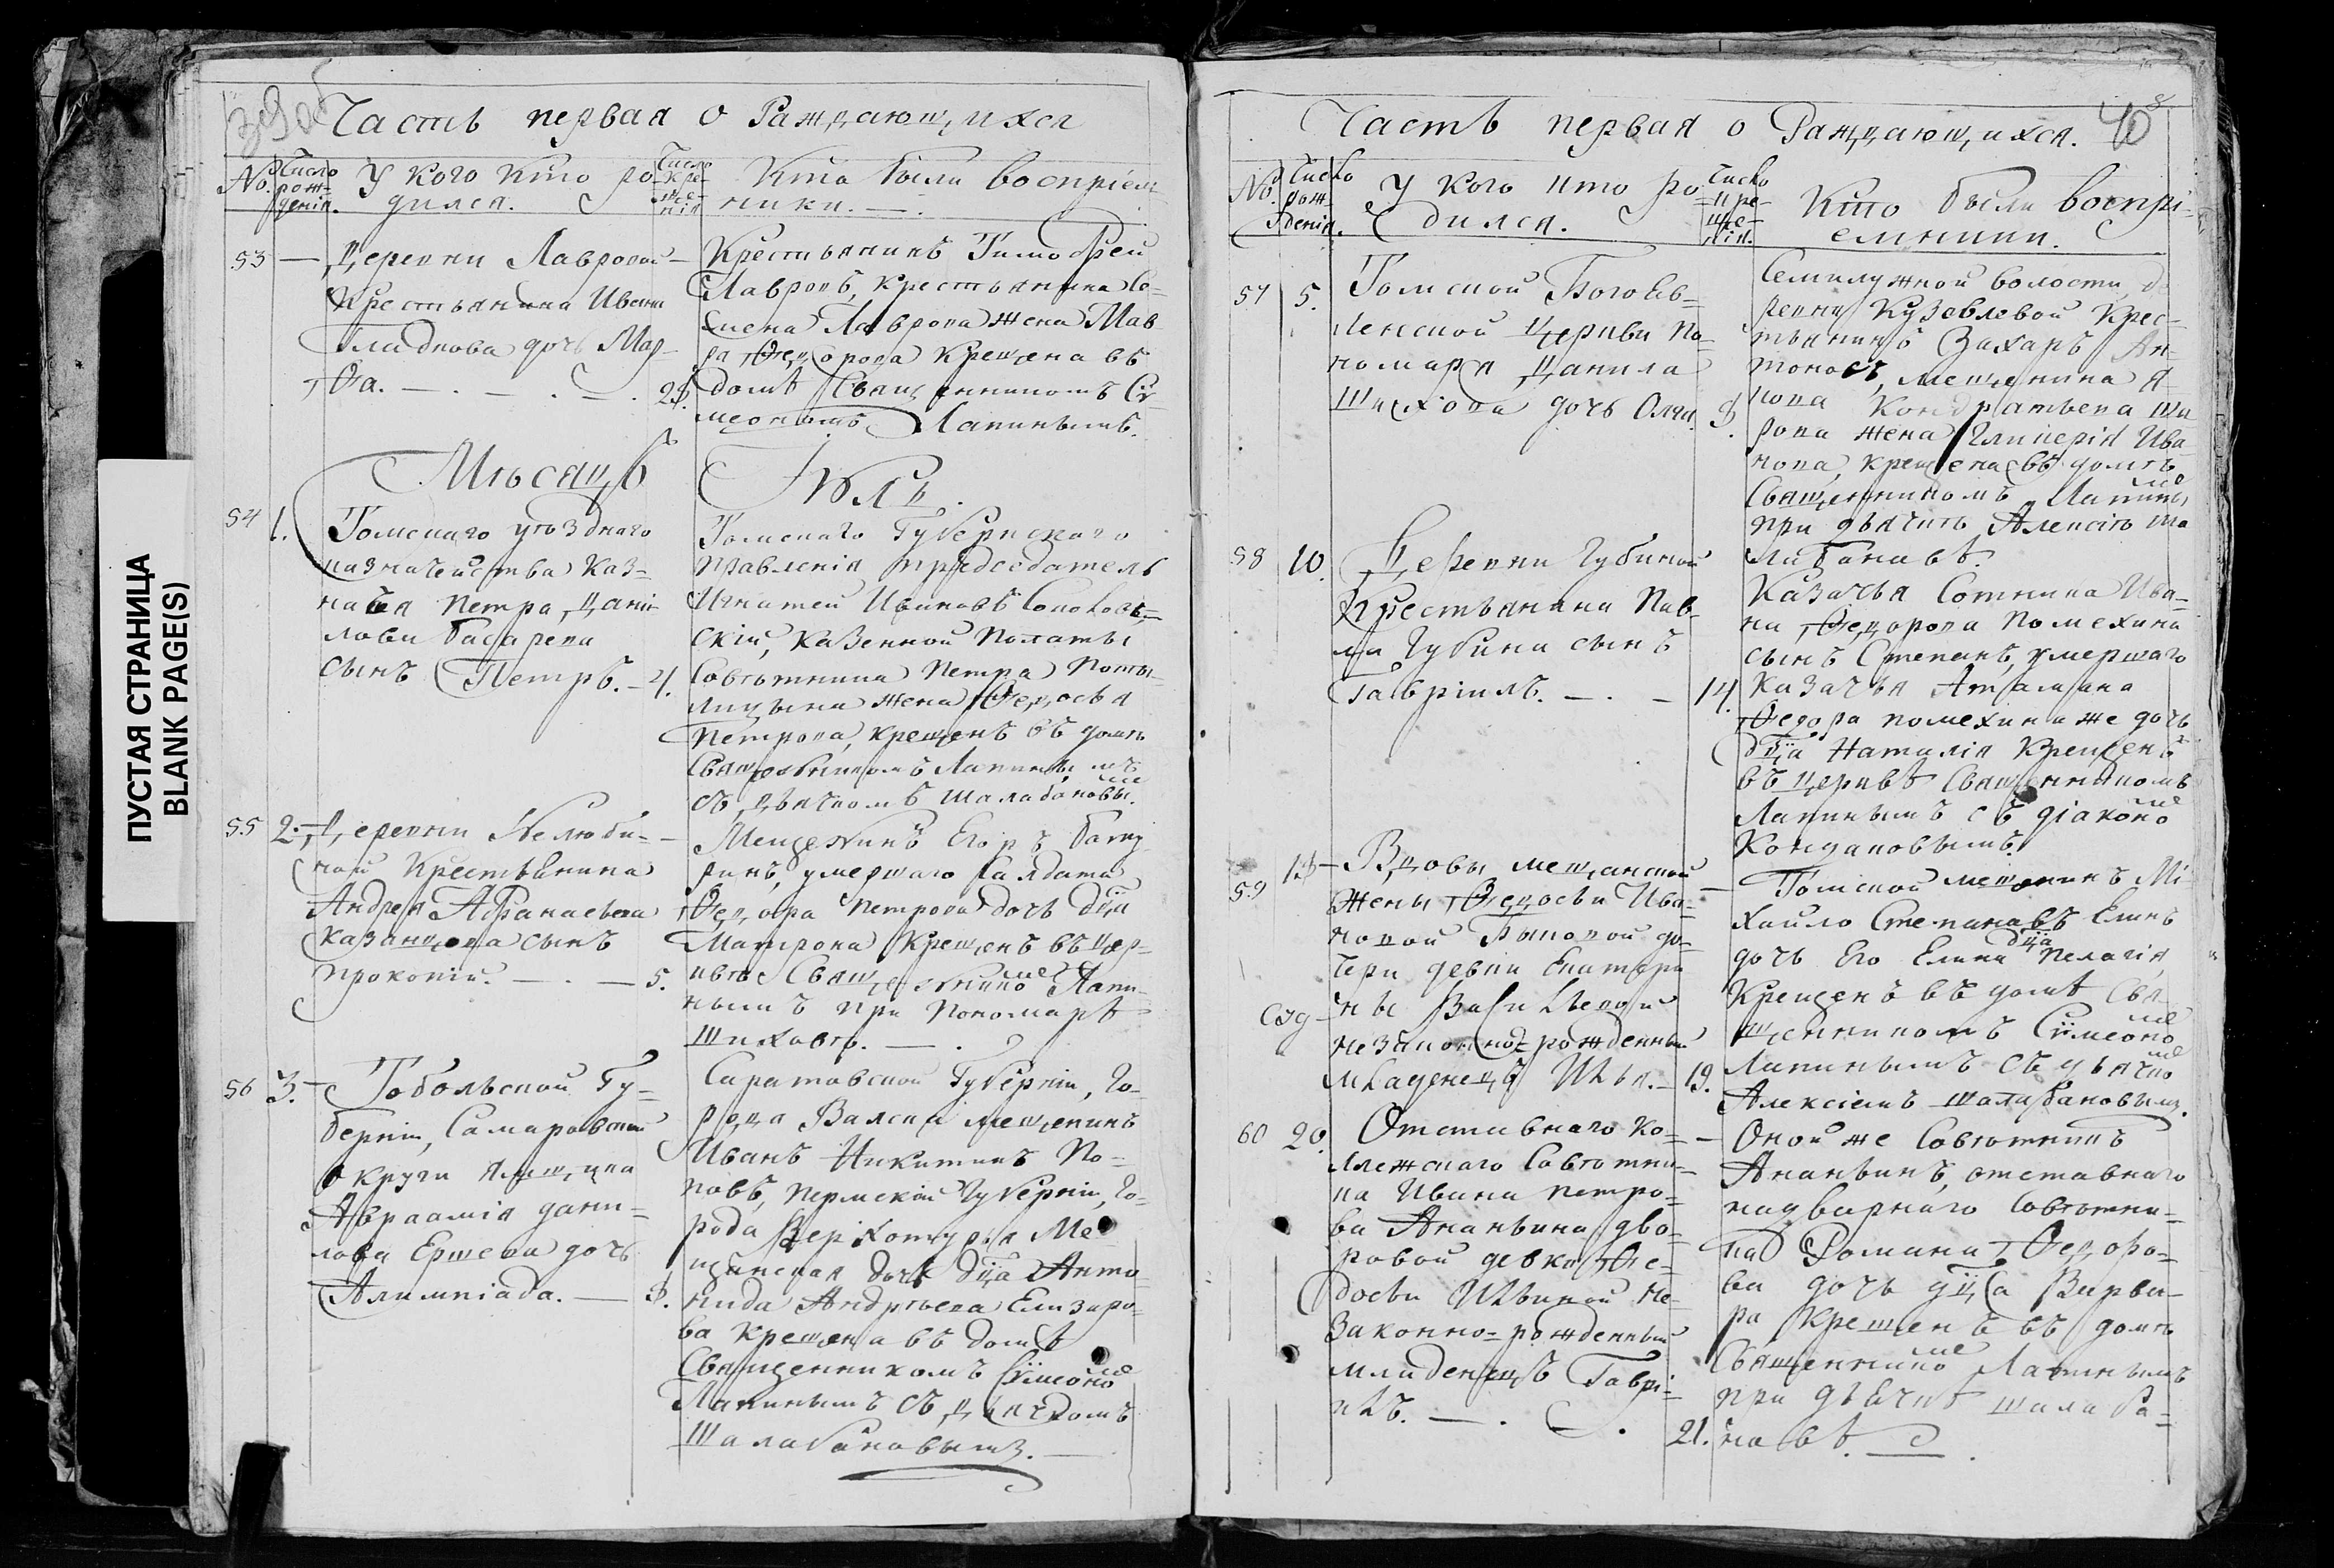 ПУСТАЯ СТРАНИЦА
BLANK PAGE(S)
39 об
Часть первая о Раждающихся
№. Число рож-денія. У кого кто ро-дился. Число кре-ще-нія Кто были воспріем-ники.
53 — Деревни Лавровой
Крестьянина Ивана
Гладкова дочь Мар-
ѳа. 29.
Крестьянинъ Тимофей
Лавровъ, крестьянина Се-
мена Лаврова жена Мав-
ра Ѳедорова крещена въ
домѣ Священникомъ Сѵ-
меономъ Лапинымъ.
Мѣсяцъ Іюль.
54 1. Томскаго уѣзднаго
казначейства Каз-
начея Петра Дани-
лова
сынъ Петръ. 4.
Томскаго Губернскаго
Правленія председатель
Игнатей Ивановъ Соколов-
скій, казенной полаты
Совѣтника Петра
жена Ѳедосья
Петрова, крещенъ въ домѣ
Священникомъ Лапинымъ
съ дьячкомъ Шалабановым.
55 2. Деревни Нелюби-
ной Крестьянина
Андрея Афанасьева
Казанцова сынъ
Прокопій. 5.
Мещенинъ Егоръ Бату-
ринъ, умершаго Салдата
Ѳедора Петрова дочь дѣца
Матрона Крещенъ въ цер-
квѣ Священником Лапи-
нымъ при Пономарѣ
Шиховѣ.
56 3. Тобольской Гу-
берніи, Самаровской
округи Ямщика
Авраамія Дани-
лова Ершева дочь
Алимпіада. 8.
Саратовской Губерніи, Го-
рода Валска мещенинъ
Иванъ Никитинъ По-
повъ, Пермской Губерніи, Го-
рода Верхотурья Ме-
щанская дочь дѣца Анто-
нида Андреева Елизаро-
ва крещена въ домѣ
Священникомъ Сѵмеоном
Лапинымъ съ дьячкомъ
Шалабановымъ.
Часть первая о Раждающихся. 40
№. Число рож-денія. У кого кто ро-дился. Число кре-ще-нія. Кто были воспрі-емники.
57 5. Томской Богояв-
ленской Церкви по-
номаря Данила
Шихова дочь Олга. 8.
Семилужной волости де
ревни Кузовлевой Крес-
тьянинъ Захаръ Ан-
тоновъ, мещенина Я-
кова Кондратьева Ша
рова жена Гликерія Ива
нова, крещена въ домѣ
Священникомъ Лапиным
при дьячкѣ Алексѣѣ Ша
лабановѣ.
58 10. Деревни Губиной
Крестьянина Пав-
ла Губина сынъ
Гавріилъ. 14.
Казачья Сотника Ива-
на Ѳедорова Помехина
сынъ Степанъ, умершаго
казачья Атамана
Ѳедора Помехина же дочь
дѣца Наталія Крещенъ
въ церквѣ Священникомъ
Лапинымъ съ діаконом
Кондаковымъ.
59 13 Вдовы мещанской
жены Ѳедосьи Ива-
новой Рыковой до-
чери девки Екатери
ны Васильевой
незаконно-рожденный
младенецъ Илья. 19.
Томской мещенинъ Ми
хайло Степановъ Елинъ
дочь Его Елина дѣца Пелагія,
Крещенъ въ домѣ Свя-
щенникомъ Сѵмеоном
Лапинымъ съ дьячком
Алексіемъ Шалабановымъ.
60 20. Отставнаго Ко-
лежскаго Совѣтни-
ка Ивана Петро-
ва Ананьина дво-
ровой девки Ѳе-
досьи Ильиной не-
законно-рожденный
младенецъ Гаврі-
илъ. 21.
Оной же Совѣтникъ
Ананьинъ, отставнаго
надворнаго Совѣтни-
ка Романа Ѳедоро-
ва дочь дѣца Варва-
ра Крещенъ въ домѣ
Священником Лапинымъ
при дьячкѣ Шалаба-
новѣ.